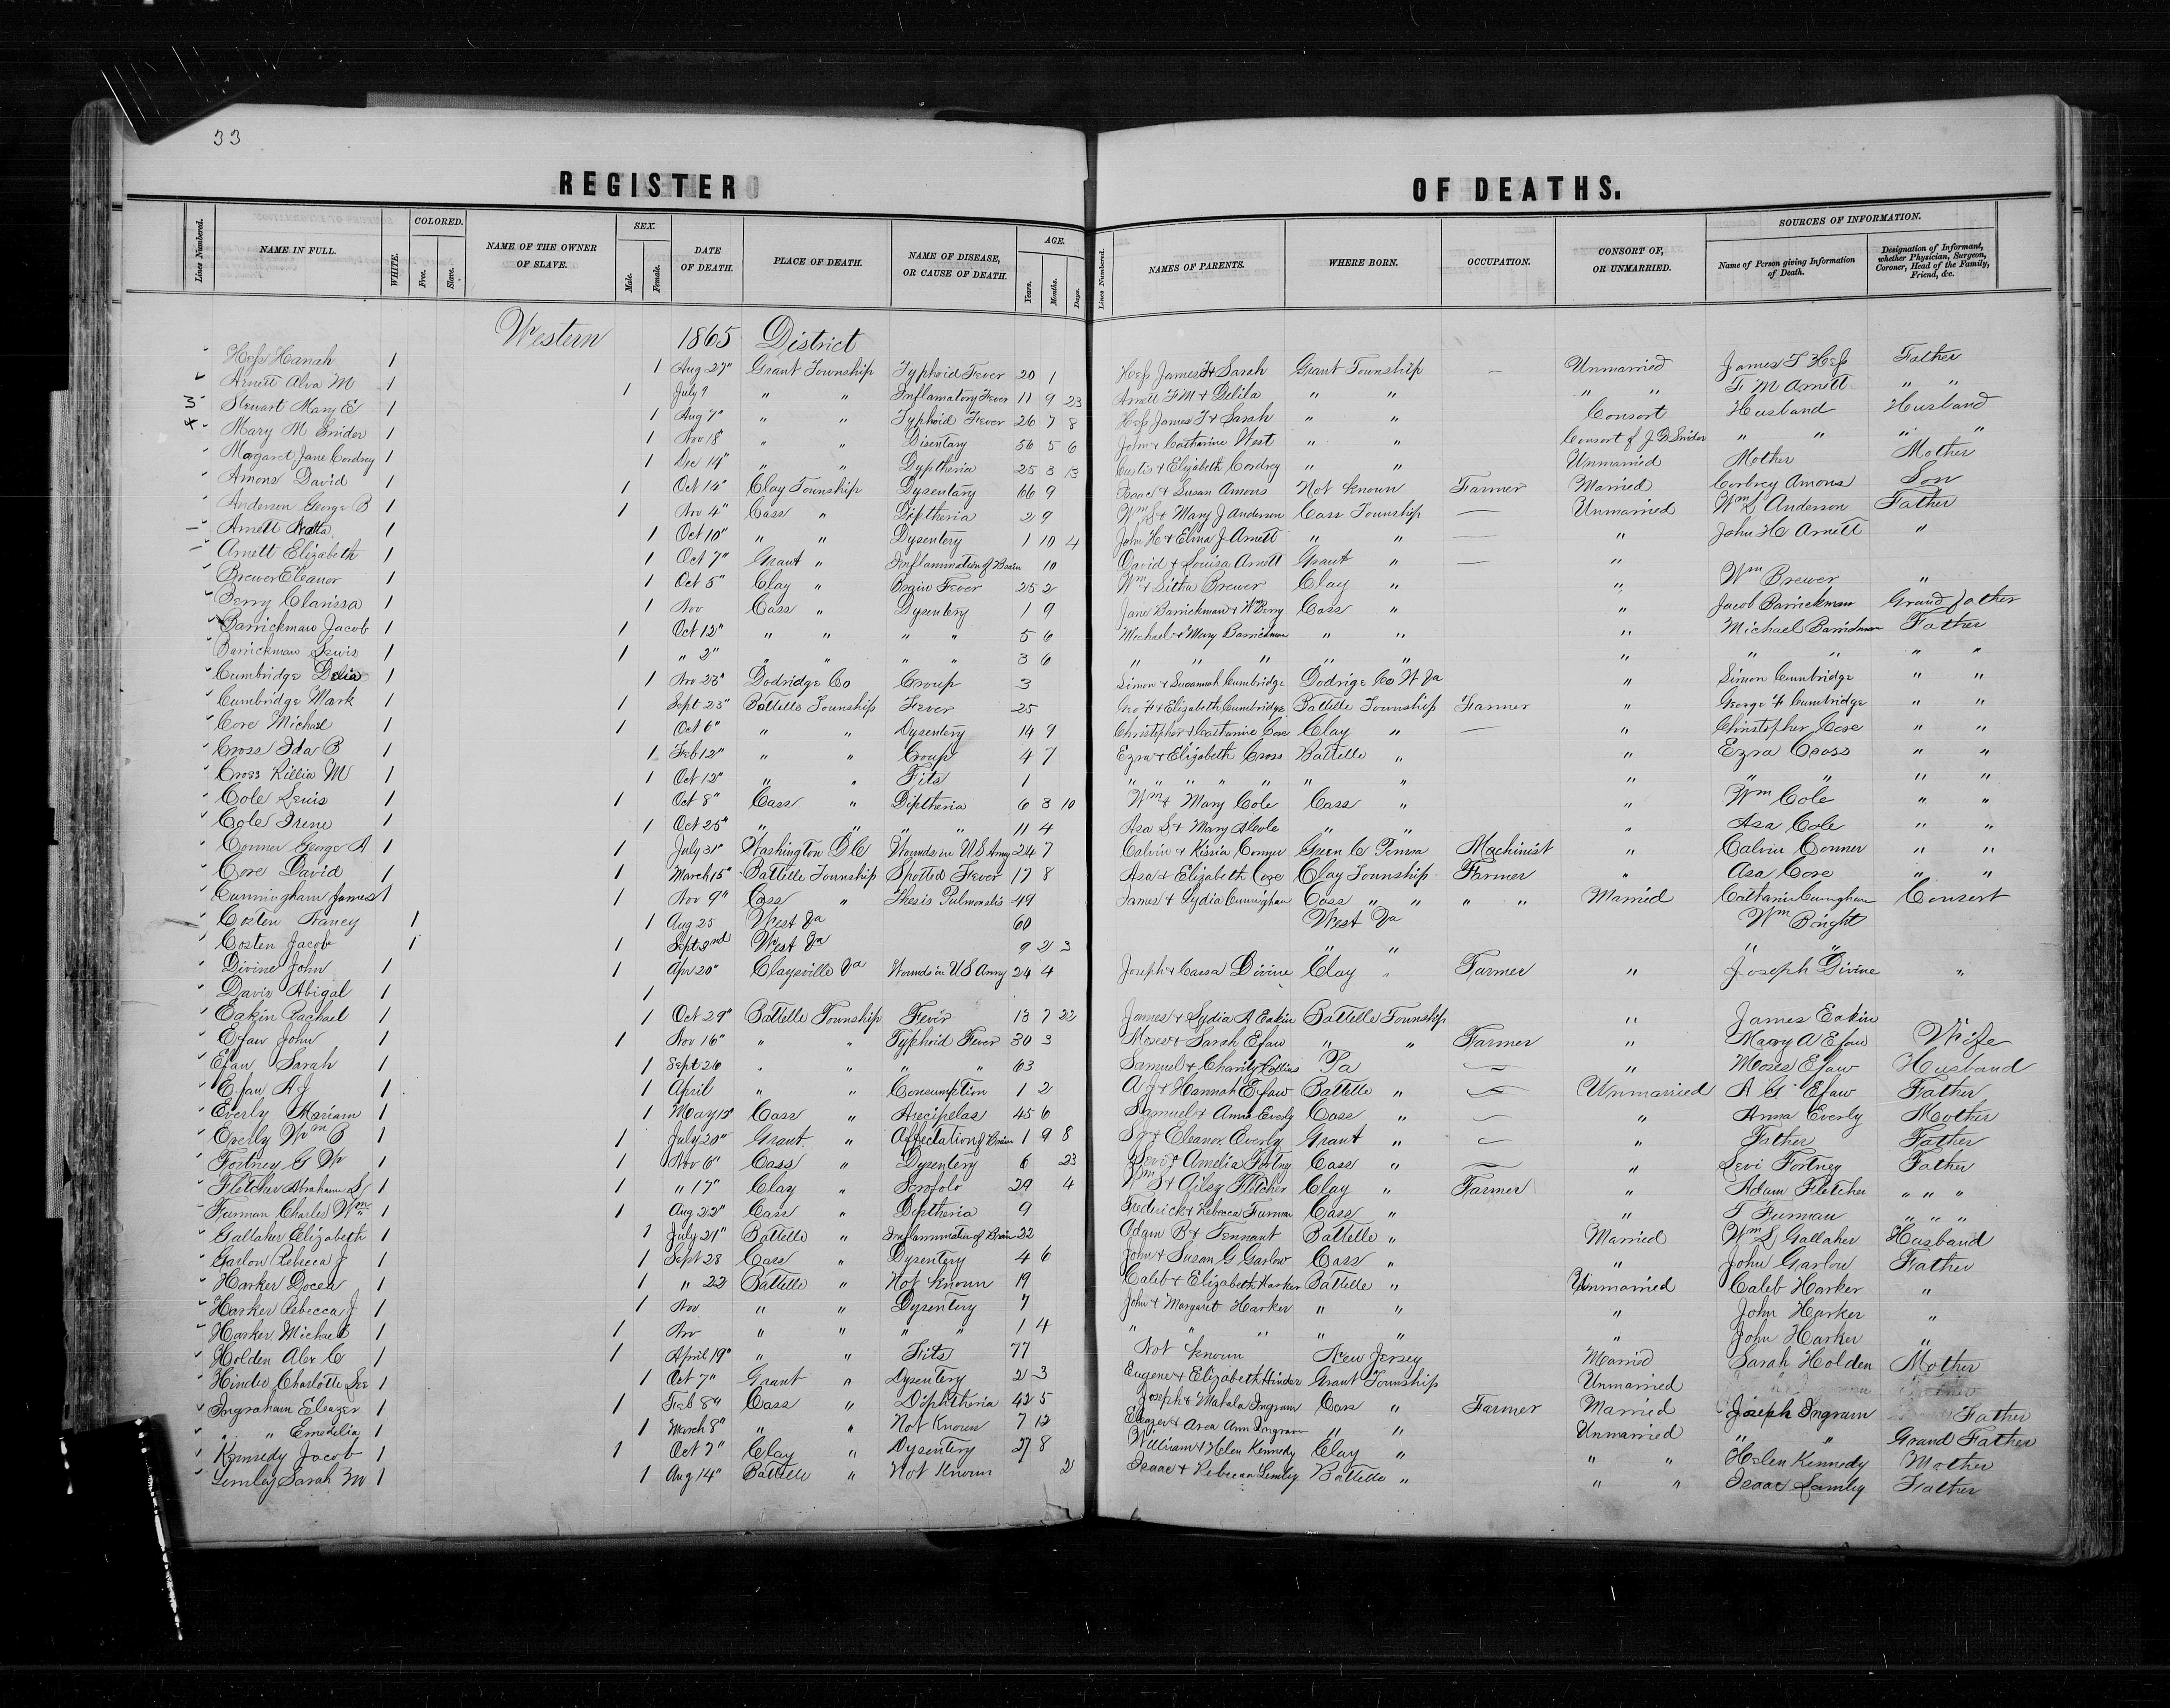 33
REGISTER OF DEATHS.
Lines Numbered. NAME IN FULL. WHITE. COLORED. Free. Slave. NAME OF THE OWNER OF SLAVE. SEX. Male. Female. DATE OF DEATH. PLACE OF DEATH. NAME OF DISEASE, OR CAUSE OF DEATH. AGE. Years. Months. Days. Lines Numbered. NAMES OF PARENTS. WHERE BORN. OCCUPATION. CONSORT OF, OR UNMARRIED. SOURCES OF INFORMATION. Name of Person giving Information of Death. Designation of Informant, whether Physician, Surgeon, Coroner, Head of the Family, Friend, &c.
Western 1865 District
Hess Hanah 1 1 Aug 27" Grant Township Typhoid Fever 20 1 Hess James T & Sarah Grant Township — Unmarried James T Hess Father
Arnett Alva M 1 1 July 9 " " Inflamatory Fever 11 9 23 Arnett F M & Delila " " " " F M Arnett " "
3 Stewart Mary E 1 1 Aug 7" " " Typhoid Fever 26 7 8 Hess James T & Sarah " " Consort Husband Husband
4 Mary M Snider 1 1 Nov 18" " " Disentary 56 5 6 John & Catharine West " " Consort of J B Snider " " " "
Margaret Jane Cordrey 1 1 Dec 14" " " Dyptheria 25 3 13 Curtis & Elizabeth Cordrey " " Unmarried Mother Mother
Amons David 1 1 Oct 14" Clay Township Dysentary 66 9 Isaac & Susan Amons Not Known Farmer Married Corbrey Amons Son
Anderson George B 1 1 Nov 4" Cass " Diptheria 2 9 Wm S & Mary J Anderson Cass Township — Unmarried Wm S Anderson Father
Arnett 1 1 Oct 10" " " Dysentery 1 10 4 John H & Elina J Arnett " " — " John H Arnett "
Arnett Elizabeth 1 1 Oct 7" Grant " Inflammation of Brain 10 David & Louisa Arnett Grant " — "
Brewer Eleanor 1 1 Oct 5" Clay " Brain Fever 25 2 Wm & Litha Brewer Clay " " Wm Brewer "
Berry Clarissa 1 1 Nov Cass " Dysentery 1 9 Jane Barrickman & Wm Berry Cass " " Jacob Barrickman Grand father
Barrickman Jacob 1 1 Oct 12" " " " " 5 6 Michael & Mary Barrickman " " " Michael Barrickman Father
Barrickman Lewis 1 1 " 2" " " " " 3 6 " " " " " " " " " "
Cumbridge Delia 1 1 Nov 23" Dodridge Co Croup 3 Simon & Susannah Cumbridge Dodrige Co W Va " Simon Cumbridge " "
Cumbridge Mark 1 1 Sept 23" Battelle Township Fever 25 Geo F & Elizabeth Cumbridge Battelle Township Farmer " George F Cumbridge " "
Core Michael 1 1 Oct 6" " " Dysentery 14 9 Christopher & Catharine Core Clay " — " Christopher Core " "
Cross Ida B 1 1 Feb 12" " " Croup 4 7 Ezra & Elizabeth Cross Battelle " " Ezra Cross " "
Cross Rillia M 1 1 Oct 12" " " Fits 1 " " " " " " " " " " "
Cole Lewis 1 1 Oct 8" Cass " Diptheria 6 3 10 Wm & Mary Cole Cass " " Wm Cole " "
Cole Irene 1 1 Oct 25" " " " " 11 4 Asa S & Mary A Cole " " " Asa Cole " "
Conner George A 1 1 July 31" Washington D C Wounds in U S Army 24 7 Calvin & Kisiria Conner Green C Penna Machinist " Calvin Conner " "
Core David 1 1 March 15" Battelle Township Spotted Fever 17 8 Asa & Elizabeth Core Clay Township Farmer " Asa Core " "
Cunningham James 1 1 Nov 9" Cass " Thesis Pulmonalis 49 James & Lydia Cuningham Cass " " " " Married Catharin Cuningham Consort
Costen Nancy 1 1 Aug 25 West Va 60 West Va Wm Bright
Costen Jacob 1 1 Sept 2nd West Va 9 2 3 " " " "
Divine John 1 1 Apr 20" Claysville Va Wounds in U S Army 24 4 Joseph & Cassa Divine Clay " Farmer " Joseph Divine "
Davis Abigal 1 1
Eakin Rachael 1 1 Oct 29" Battelle Township Fever 13 7 22 James & Lydia A Eakin Battelle Township " James Eakin
Efaw John 1 1 Nov 16" " " Typhoid Fever 30 3 Moses & Sarah Efaw " " Farmer " Mary A Efaw Wife
Efaw Sarah 1 1 Sept 26 " " " " 63 Samuel & Charity Collins Pa — " Moses Efaw Husband
Efaw A J 1 1 April " " Consumption 1 2 A J & Hannah Efaw Battelle " — Unmarried A G Efaw Father
Everly Mariam 1 1 May 13" Cass " Arecipelas 45 6 Samuel & Anna Everly Cass " — " Anna Everly Mother
Everly Wm B 1 1 July 20" Grant " Affectation of Brain 1 9 8 & Eleanor Everly Grant " — " Father Father
Fortney G W 1 1 Nov 6" Cass " Dysentery 6 23 Levi & Amelia Fortny Cass " — " Levi Fortney Father
Fletcher Abraham S 1 1 " 17" Clay " Scrofolo 29 4 Wm S & Ailsy Fletcher Clay " Farmer " Adam Fletcher " " "
Furman Charles Wm 1 1 Aug 22" Cass " Diptheria 9 Frederick & Rebecca Furman Cass " " T Furman " " "
Gallaher Elizabeth 1 1 July 21" Battelle " Inflammation of Brain 22 Adam B & Tennant Battelle " Married Wm L Gallaher Husband
Garlow Rebecca J 1 1 Sept 28 Cass " Dysentery 4 6 John & Susan G Garlow Cass " " John Garlow Father
Harker Docea 1 1 " 22 Battelle " Not Known 19 Caleb & Elizabeth Harker Battelle " Unmarried Caleb Harker "
Harker Rebecca J 1 1 Nov " " Dysentery 7 John & Margaret Harker " " " John Harker "
Harker Michael 1 1 Nov " " " " 1 4 " " " " " " John Harker "
Holden Alex C 1 1 April 19" " " Fits 77 Not known New Jersey Married Sarah Holden Mother
Charlotte 1 1 Oct 7" Grant " Dysentery 2 3 Eugene & Elizabeth Hinder Grant Township Unmarried
Ingraham Eleazer 1 1 Feb 8" Cass " Diphtheria 42 5 Joseph & Mahala Ingram Cass " Farmer Married Joseph Ingram Father
" " Emedilia 1 1 March 8" " " Not Known 7 12 Eleazer & Area Ann Ingram " " Unmarried " " Grand Father
Kennedy Jacob 1 1 Oct 7" Clay " Dysentery 27 8 William & Helen Kennedy Clay " " " Helen Kennedy Mother
Lemley Sarah M 1 1 Aug 14" Battelle " Not Known 2 Isaac & Rebecca Lemley Battelle " " " Isaac Lemley Father